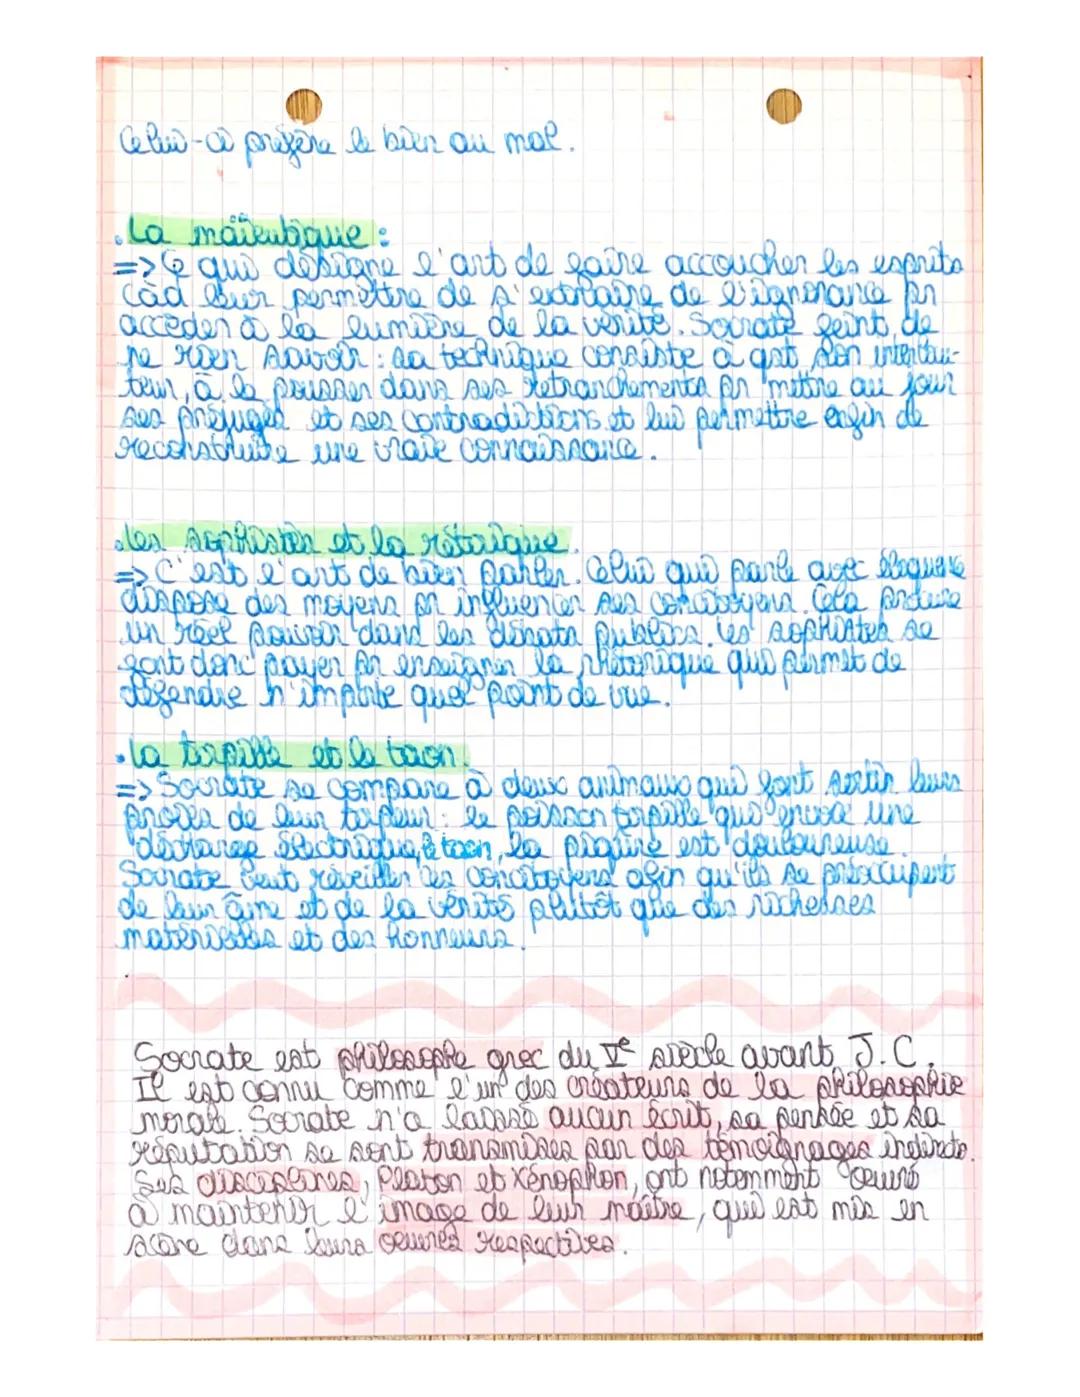 Celui-ci préfère le bien au mal.
. La maïeutique :
=> Ce qui désigne l'art de faire accoucher les esprits
càd leur permettre de s'extraire de l'ignorance pr
accéder à la lumière de la vérité. Socrate feint de
ne rien savoir : sa technique consiste à qst son interlocu-
teur, à le pousser dans ses retranchements pr mettre au jour
ses préjugés et ses contradictions et lui permettre enfin de
reconstruire une vraie connaissance.
. les sophistes et la rétorique.
=> C'est l'art de bien parler. Celui qui parle avec éloquence
dispose des moyens pr influencer ses concitoyens. Cela procure
un réel pouvoir dans les débats publics. les sophistes se
font donc payer pr enseigner la rhétorique qui permet de
défendre n'importe quel point de vue.
. La torpille et le taon.
=> Socrate se compare à deux animaux qui font sortir leurs
proies de leur torpeur : le poisson torpille qui envoie une
décharge électrique, le taon, la piqûre est douloureuse.
Socrate veut réveiller les concitoyens afin qu'ils se préoccupent
de leur âme et de la vérité plutôt que des richesses
matérielles et des honneurs.
Socrate est philosophe grec du Ve siècle avant J.C.
Il est connu comme l'un des créateurs de la philosophie
morale. Socrate n'a laissé aucun écrit, sa pensée et sa
réputation se sont transmises par des témoignages indirects.
Ses disciplines, Platon et Xénophon, ont notemment œuvré
à maintenir l'image de leur maître, qui est mis en
scène dans leurs œuvres respectives.